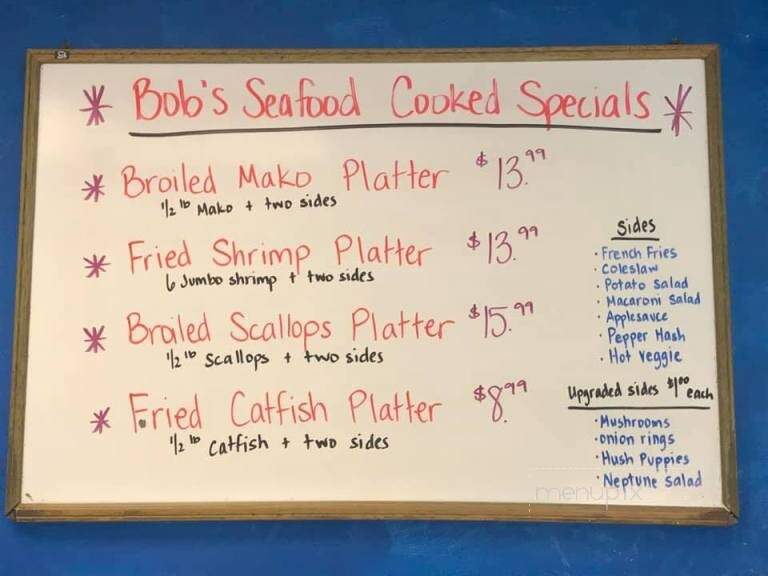 * Bob's Seafood Cooked Specials *
* Broiled Mako Platter $13.99
1/2 lb Mako + two sides
* Fried Shrimp Platter $13.99
6 Jumbo shrimp + two sides
* Broiled Scallops Platter $15.99
1/2 lb Scallops + two sides
* Fried Catfish Platter $8.99
1/2 lb Catfish + two sides
Sides
• French Fries
• Coleslaw
• Potato Salad
• Macaroni Salad
• Applesauce
• Pepper Hash
• Hot Veggie
Upgraded sides $1.00 each
• Mushrooms
• onion rings
• Hush Puppies
• Neptune Salad
menupix